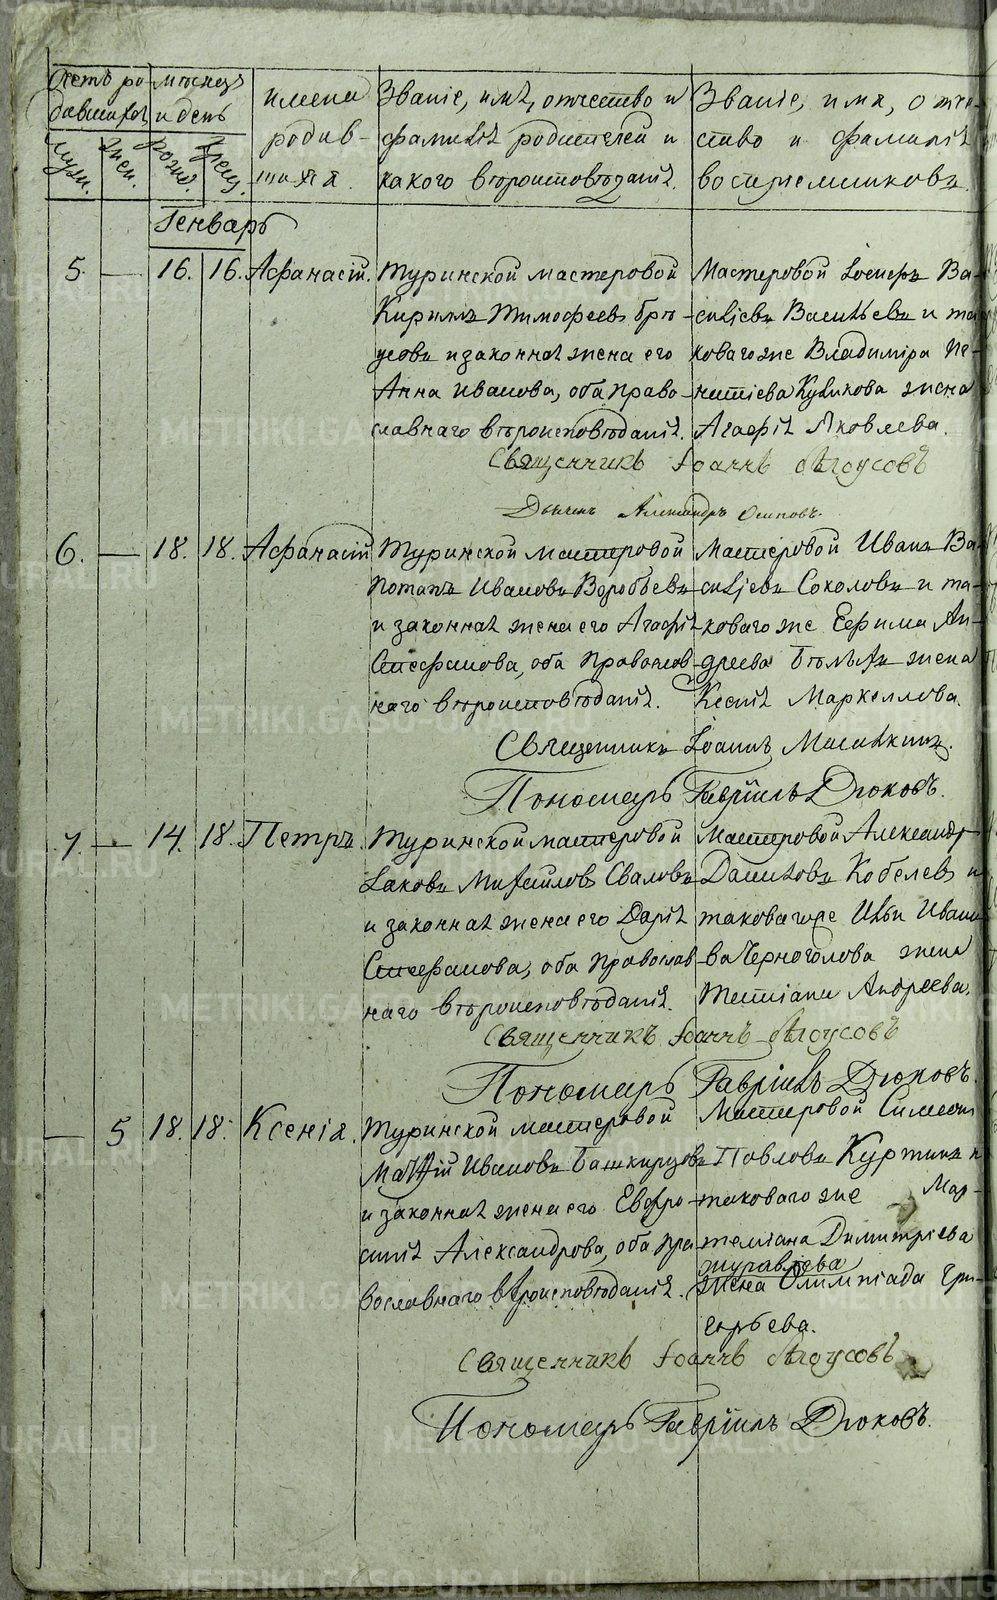 Счетъ ро
дившихся
мѣсяцъ
и день
имена
родив-
шихся
Званіе, имя, отчество и
фамилія родителей и
какого вѣроисповѣданія.
Званіе, имя, отче-
ство и фамилія
воспріемниковъ.
муж.
жен.
рожд.
крещ.
Генварь
5 — 16. 16. Афанасій. Туринской мастеровой
Кирилъ Тимофеевъ
и законная жена его
Анна Иванова, оба право-
славнаго вѣроисповѣданія.
Мастеровой Іосифъ Ва-
сильевъ Васильевъ и та-
коваго же Владиміра Иг-
натіева Куликова жена
Агафія Яковлева.
Священникъ Іоаннъ
Дьячекъ Александръ Осиповъ.
6. — 18. 18. Афанасій Туринской мастеровой
Потапъ Ивановъ Воробьевъ
и законная жена его Агафія
Стефанова, оба православ-
наго вѣроисповѣданія.
Мастеровой Иванъ Ва-
сильевъ Соколовъ и та-
коваго же Ефима Ан-
дреева жена
Ксенія Маркеллова.
Священникъ Іоаннъ
Пономарь Гавріилъ Дюковъ.
7. — 14. 18. Петръ. Туринской мастеровой
Іаковъ Михайловъ Сваловъ
и законная жена его Дарія
Стефанова, оба православ-
наго вѣроисповѣданія.
Мастеровой Александръ
Даниловъ Кобелевъ и
таковаго же Ильи Ивано-
ва Черноголова жена
Татіана Андреева.
Священникъ Іоаннъ
Пономарь Гавріилъ Дюковъ.
— 5 18. 18. Ксенія. Туринской мастеровой
Матѳій Ивановъ Башкирцовъ
и законная жена его Евфро-
синія Александрова, оба пра-
вославнаго вѣроисповѣданія.
Мастеровой Симеонъ
Павловъ Куркинъ и
таковаго же Мар-
теміана Димитріева
Журавлева
жена Олимпіада Гри-
горьева.
Священникъ Іоаннъ
Пономарь Гавріилъ Дюковъ.
METRIKI.GASO-URAL.RU